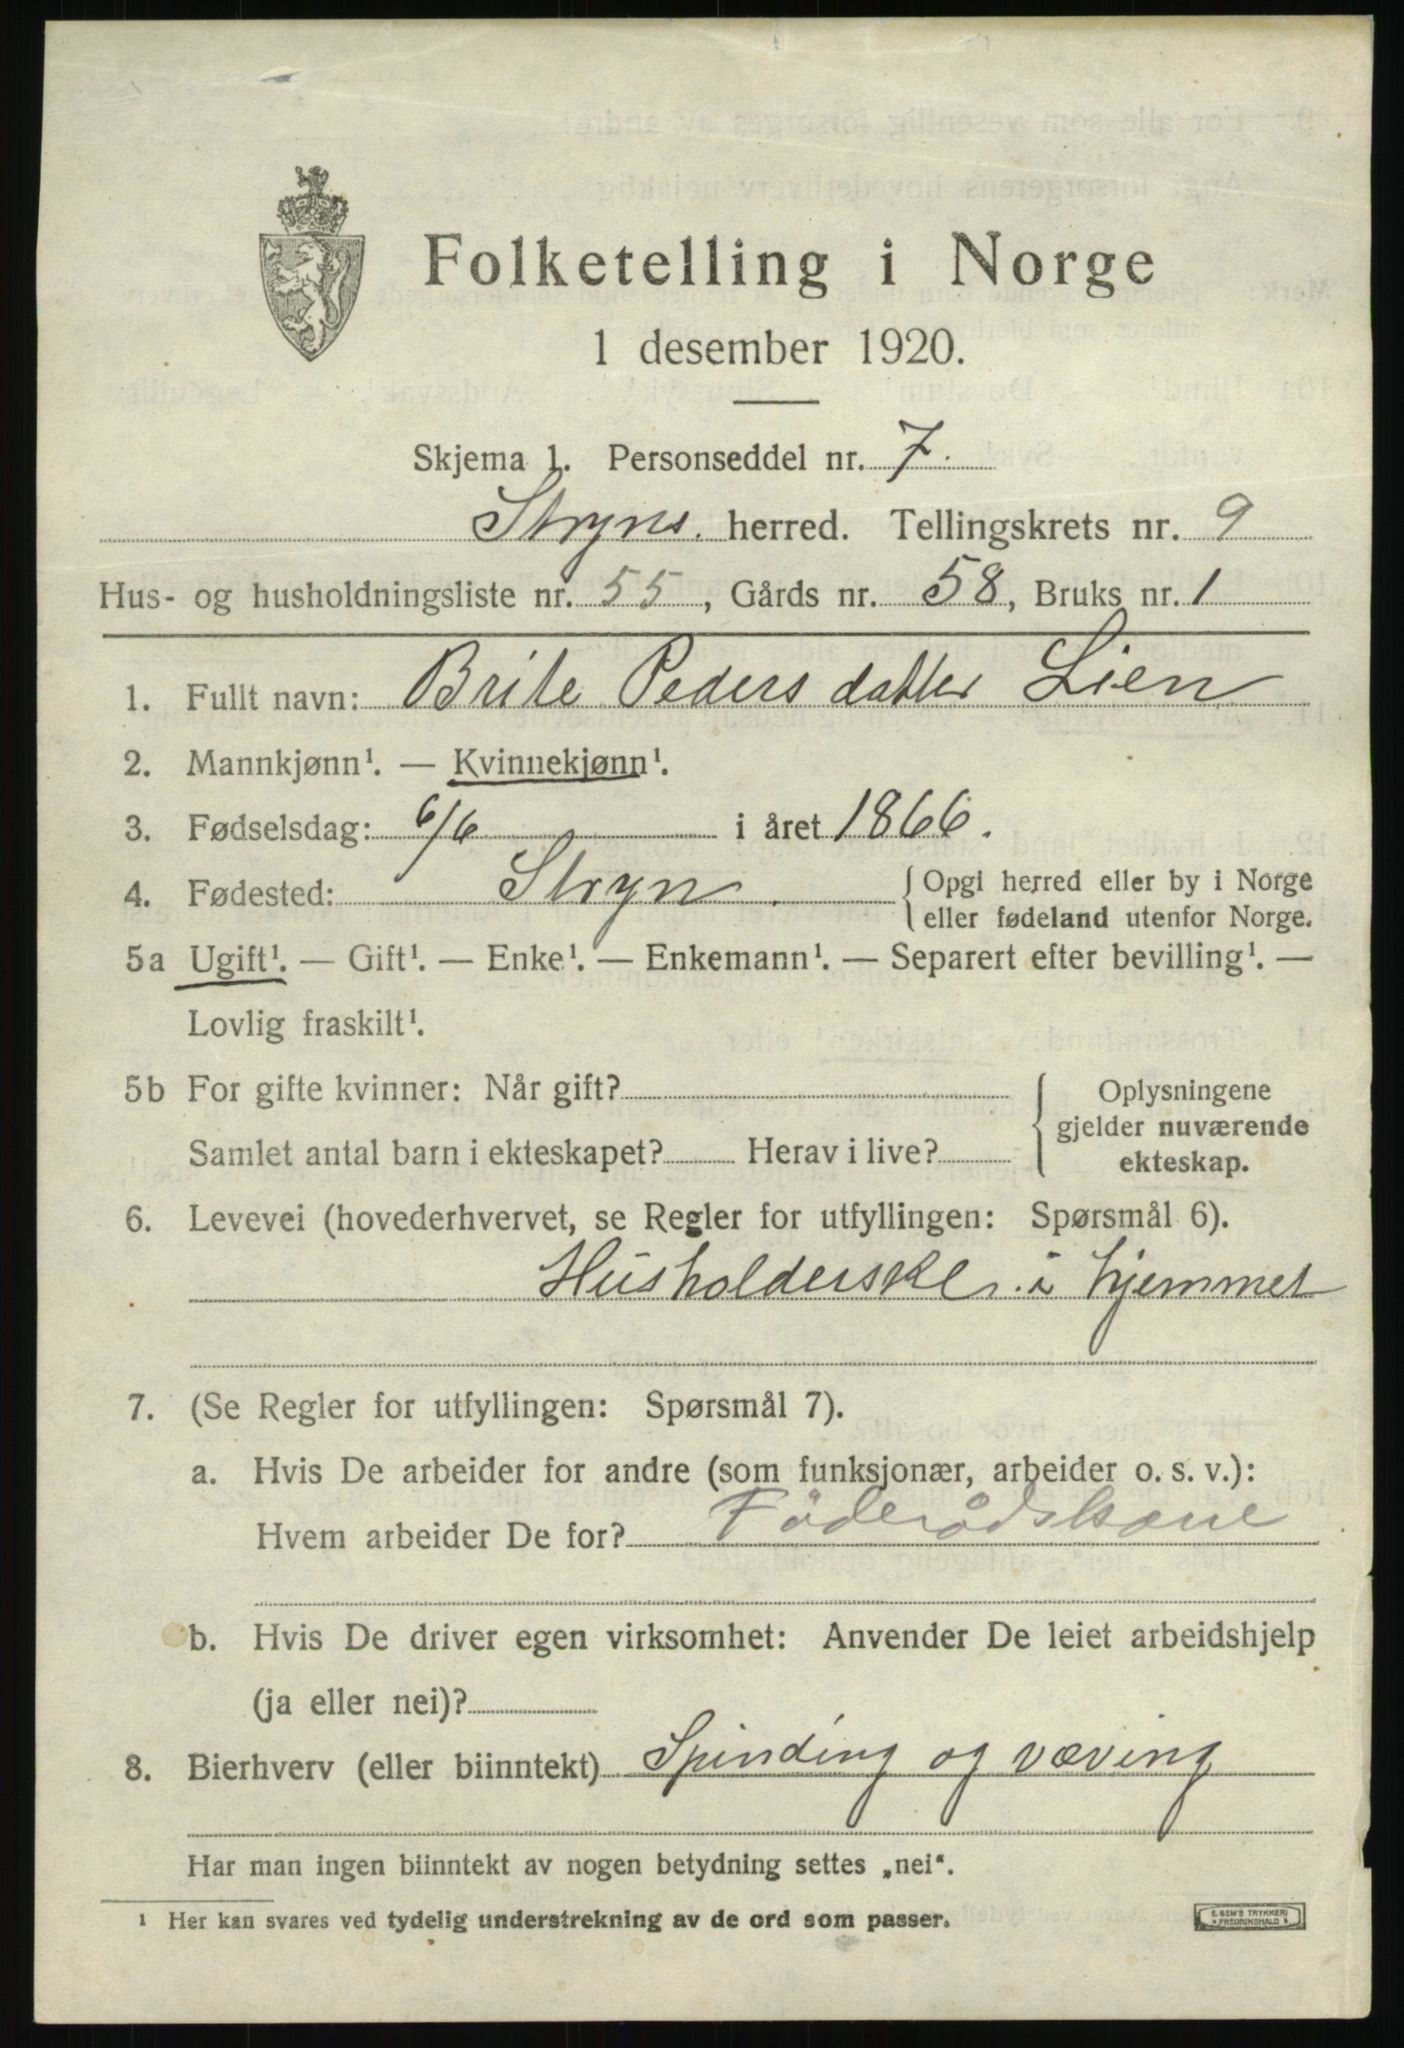 Folketelling i Norge
1 desember 1920.
Skjema 1. Personseddel nr. 7.
Stryns. herred. Tellingskrets nr. 9
Hus- og husholdningsliste nr. 55, Gårds nr. 58, Bruks nr. 1
1. Fullt navn: Brite Pedersdatter Lien
2. Mannkjønn¹. — Kvinnekjønn¹.
3. Fødselsdag: 6/6 i året 1866.
4. Fødested: Stryn. { Opgi herred eller by i Norge
eller fødeland utenfor Norge.
5a Ugift¹. — Gift¹. — Enke¹. — Enkemann¹. — Separert efter bevilling¹. —
Lovlig fraskilt¹.
5b For gifte kvinner: Når gift?
Samlet antal barn i ekteskapet? Herav i live?
{ Oplysningene
gjelder nuværende
ekteskap.
6. Levevei (hovederhvervet, se Regler for utfyllingen: Spørsmål 6).
Husholderske. i hjemmet
7. (Se Regler for utfyllingen: Spørsmål 7).
a. Hvis De arbeider for andre (som funksjonær, arbeider o. s. v.):
Hvem arbeider De for? Föderådskone
b. Hvis De driver egen virksomhet: Anvender De leiet arbeidshjelp
(ja eller nei)?
8. Bierhverv (eller biinntekt) Spinding og væving
Har man ingen biinntekt av nogen betydning settes „nei“.
¹ Her kan svares ved tydelig understrekning av de ord som passer.
E. SEM'S TRYKKERI
FREDRIKSHALD